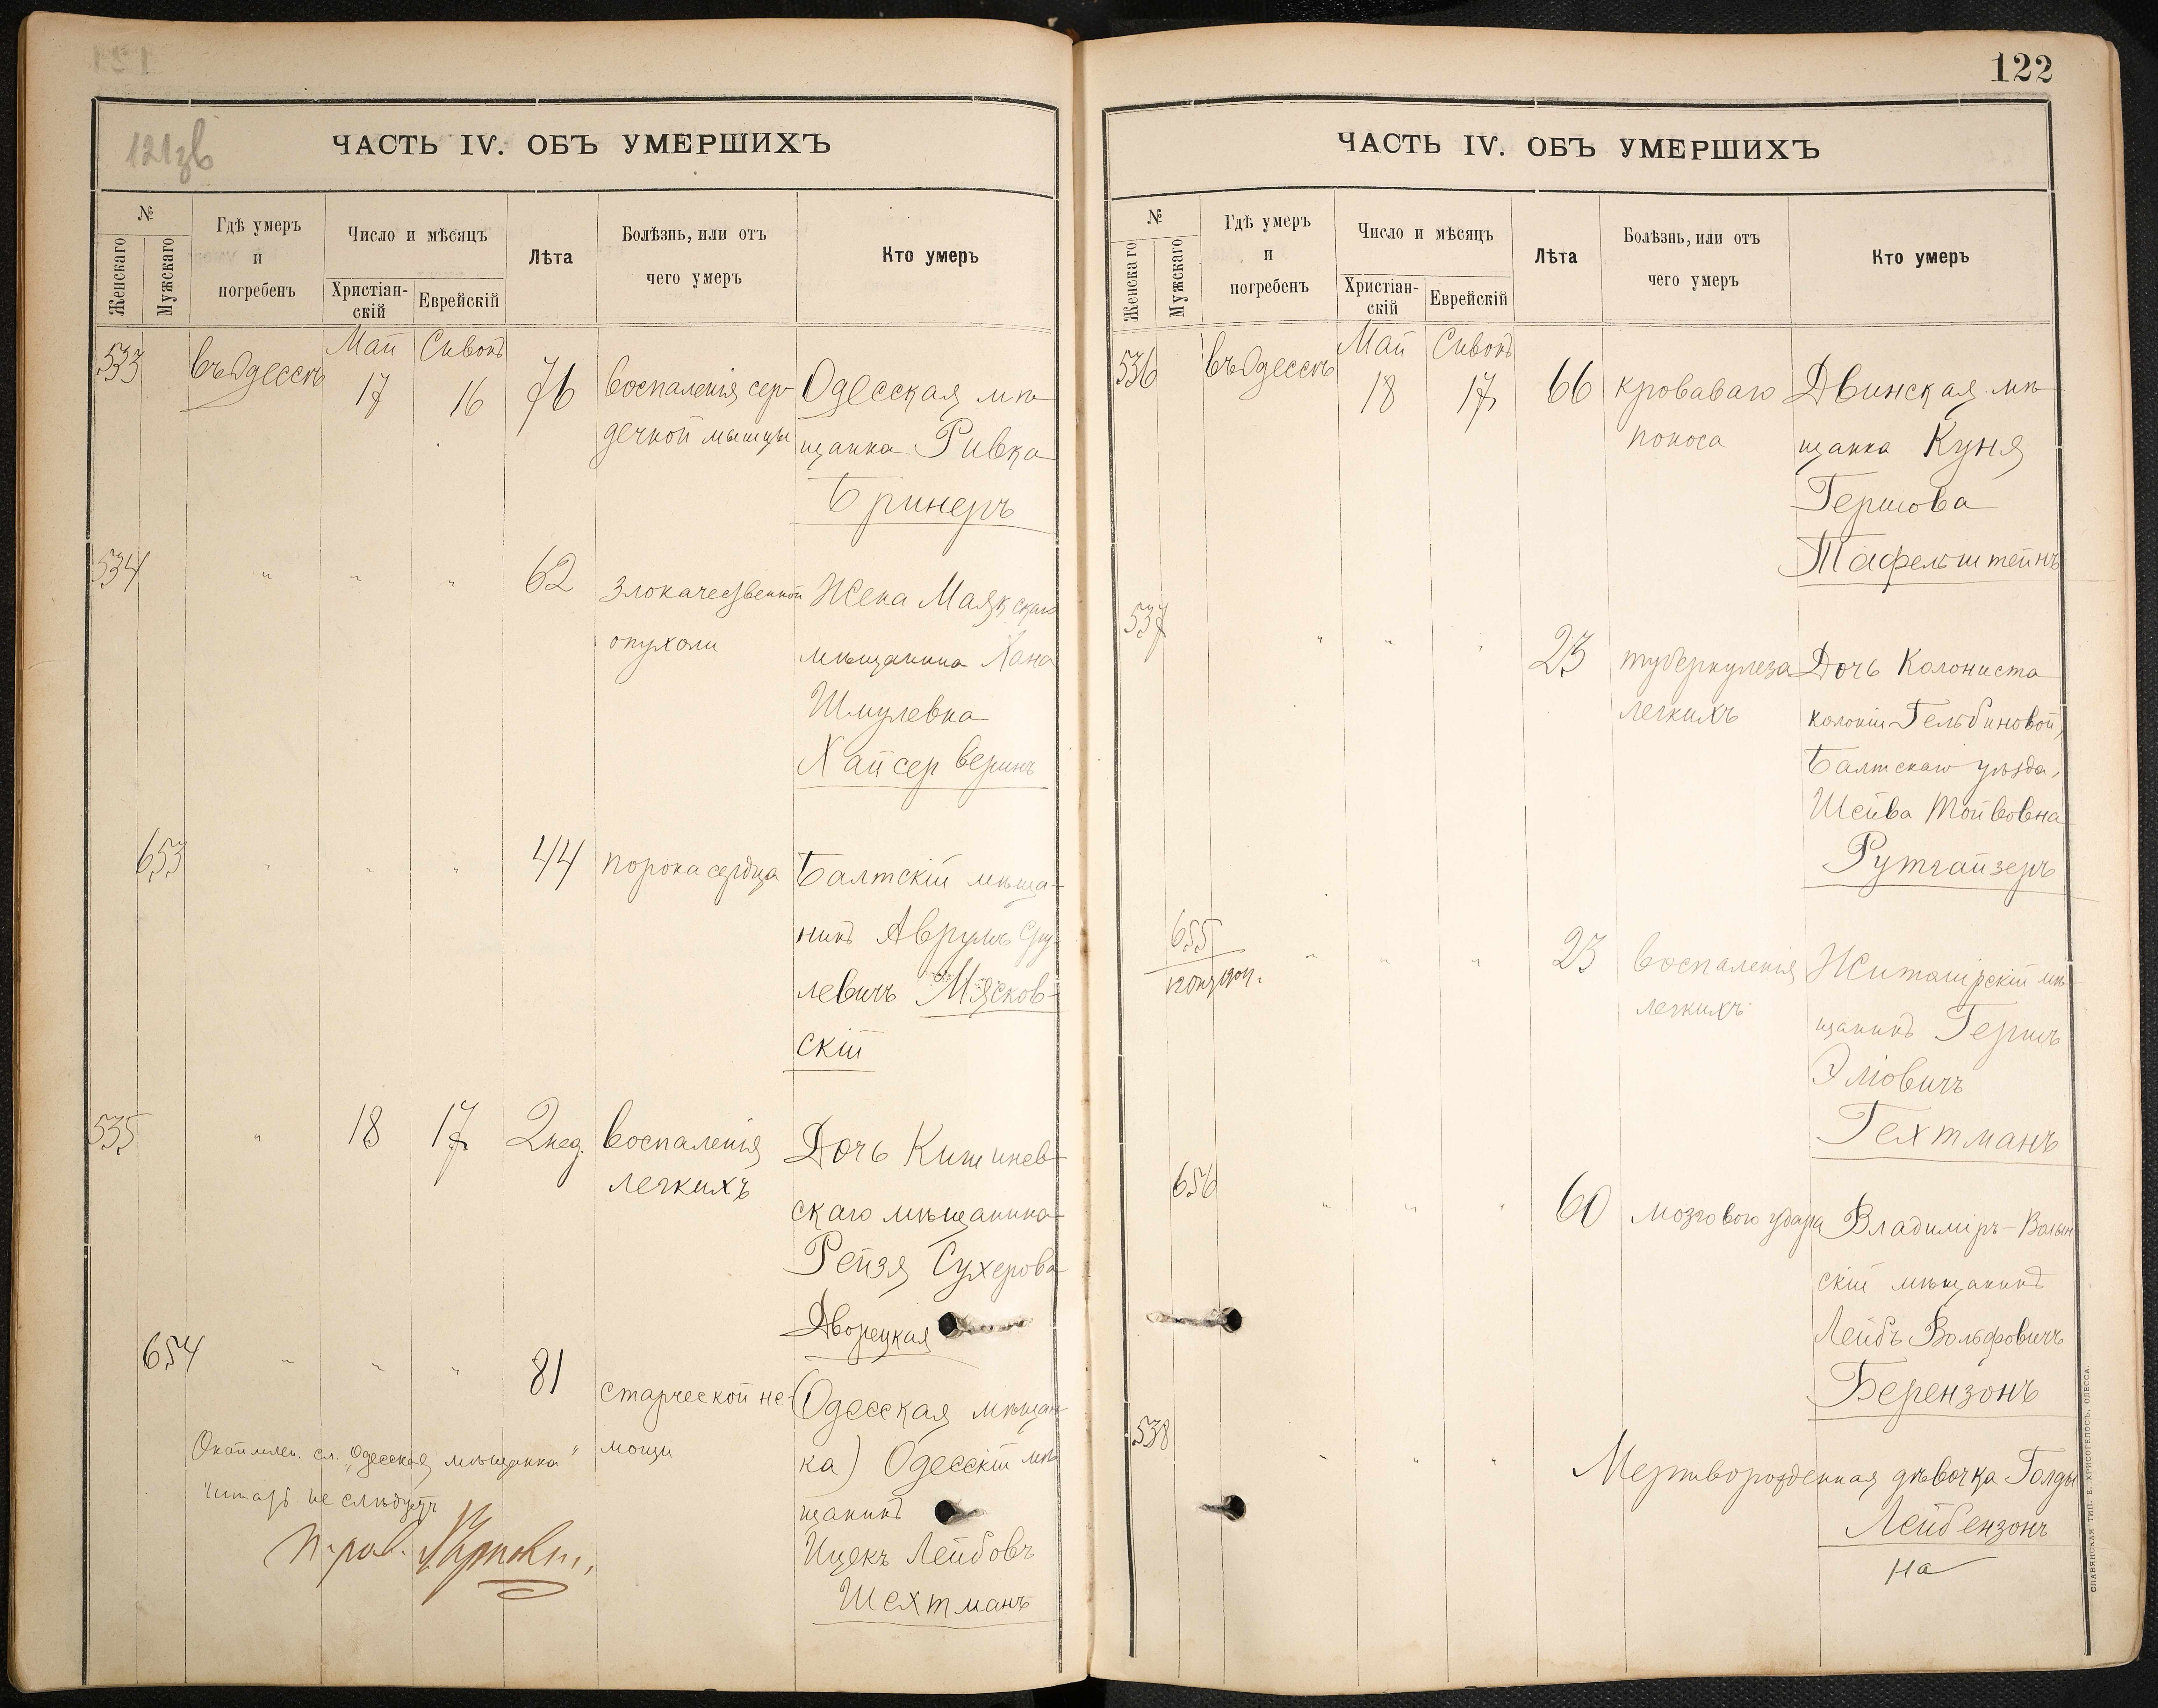 121зв
ЧАСТЬ IV. ОБЪ УМЕРШИХЪ
№
Женскаго
Мужскаго
Гдѣ умеръ
и
погребенъ
Число и мѣсяцъ
Христіан-
скій
Еврейскій
Лѣта
Болѣзнь, или отъ
чего умеръ
Кто умеръ
Май Сивонъ
533 въ Одессѣ 17 16 76 воспаленія сер- Одесская мѣ-
дечной мышцы щанка Ривка
Бринеръ
534 " " " 62 злокачественной Жена Маякскаго
опухоли мѣщанина Хана
Шмулевна
Хайсер веринъ
653 " " " 44 порока сердца Балтскій мѣща-
нинъ Аврумъ Сру-
левичъ Мясков-
скій
535 " 18 17 2 нед. воспаленія Дочь Кишинев-
легкихъ скаго мѣщанина
Рейзя Сухерова
Дворецкая
654 " " " 81 старческой не- (Одесская мѣщан-
мощи ка) Одесскій мѣ-
щанинъ
Ицекъ Лейбовъ
Шехтманъ
сл. „Одесская мѣщанка"
читать не слѣдуетъ
122
ЧАСТЬ IV. ОБЪ УМЕРШИХЪ
№
Женскаго
Мужскаго
Гдѣ умеръ
и
погребенъ
Число и мѣсяцъ
Христіан-
скій
Еврейскій
Лѣта
Болѣзнь, или отъ
чего умеръ
Кто умеръ
Май Сивонъ
536 въ Одессѣ 18 17 66 кроваваго Двинская мѣ-
поноса щанка Куня
Гершова
Тафельштейнъ
537 " " " 23 туберкулеза Дочь Колониста
легкихъ колоніи Гельбиновой,
Балтскаго уѣзда,
Шейва Мойвовна
Рутгайзеръ
655 " " " 23 воспаленія Житомірскій мѣ-
легкихъ щанинъ Гершъ
Эліовичъ
Гехтманъ
656 " " " 60 мозгового удара Владиміръ-Волын-
скій мѣщанинъ
Лейбъ Вольфовичъ
Берензонъ
538 " " " Мертворожденная дѣвочка Голды
Лейбензонъ
на
СЛАВЯНСКАЯ ТИП. Е. ХРИСОГЕЛОСЪ. ОДЕССА.